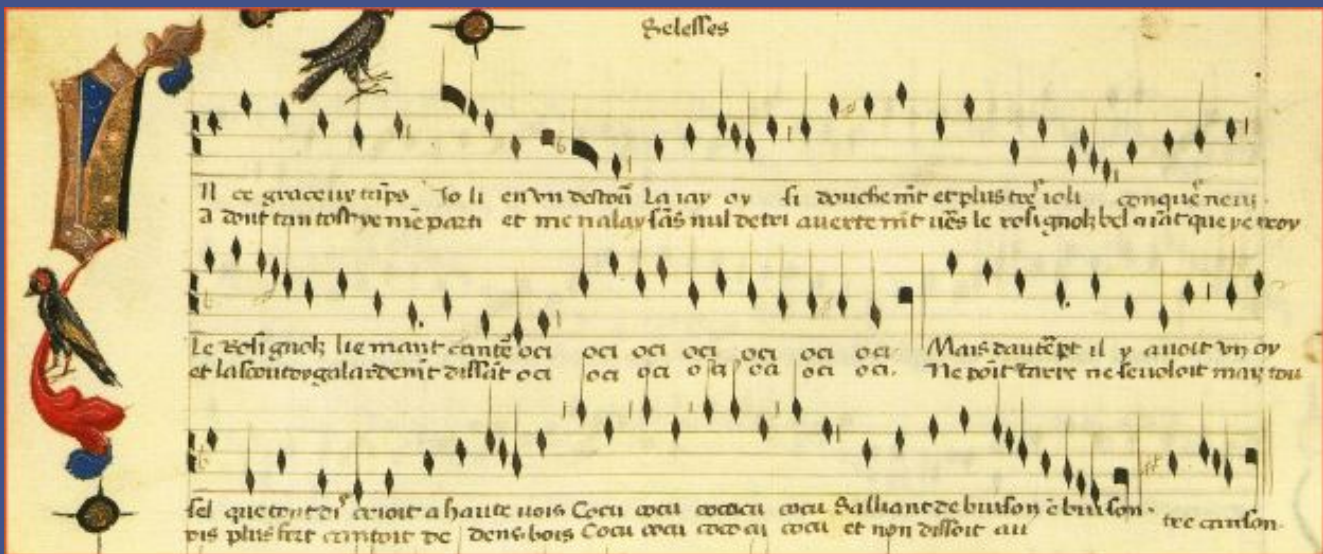 Selesses
n ce gracieux tāps Jo li en vn destour La iay oy si douchemēt et plus tres ioli conques neuy.
a dont tantost ye me parti et men alay sās nul detri auertemēt uers le rosignolz bel chāt que ye croy
Le Rosignolz liemant cante oci oci oci oci oci oci oci Mais dautre pt il y auoit vn oy
et lascoutoy galardemēt dissāt oci oci oci oci oci oci oci. Ne poit tayre ne se uoloit may tou
sel que tout di crioit a haute uois Cocu cocu cococu cocu Salliant de buison ē buison. tre canson.
iours plus fort cantoit de dens bois Cocu cocu cococu cocu et non dissoit au